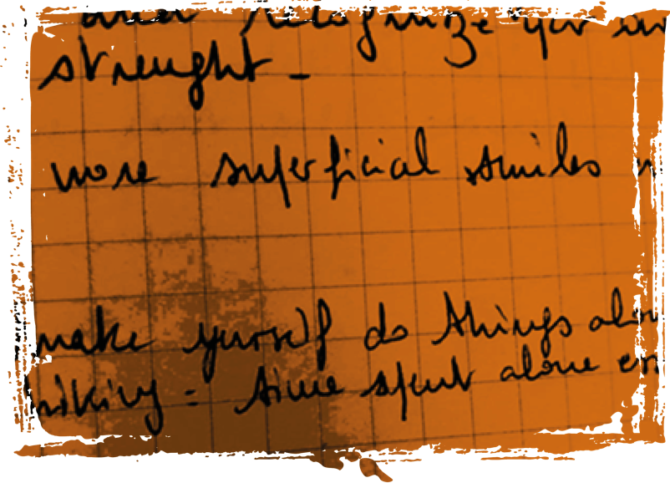 and recognize your
strenght -
more superficial smiles
make yurself do things
hiking = time spent alone